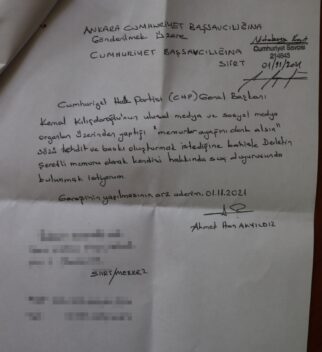 ANKARA CUMHURİYET BAŞSAVCILIĞINA
Gönderilmek Üzere
CUMHURİYET BAŞSAVCILIĞINA
SİİRT
Cumhuriyet Savcısı
214645
01/11/2021
Cumhuriyet Halk Partisi (CHP) Genel Başkanı
Kemal Kılıçdaroğlu'nun ulusal medya ve sosyal medya
organları üzerinden yaptığı "memurlar ayağını denk alsın"
sözü tehdit ve baskı oluşturmak istediğine hakla Devletin
Şerefli memuru olarak kendisi hakkında suç duyurusunda
bulunmak istiyorum.
Gereğinin yapılmasını arz ederim. 01.11.2021
Ahmet Han AKYILDIZ
SİİRT/MERKEZ